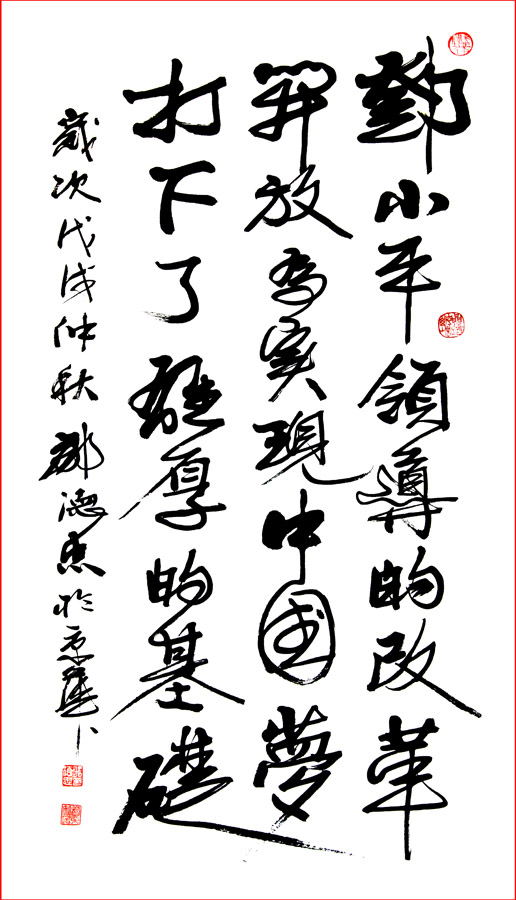 鄧小平領導的改革
開放為實現中國夢
打下了雄厚的基礎
歲次戊戌仲秋德於京華